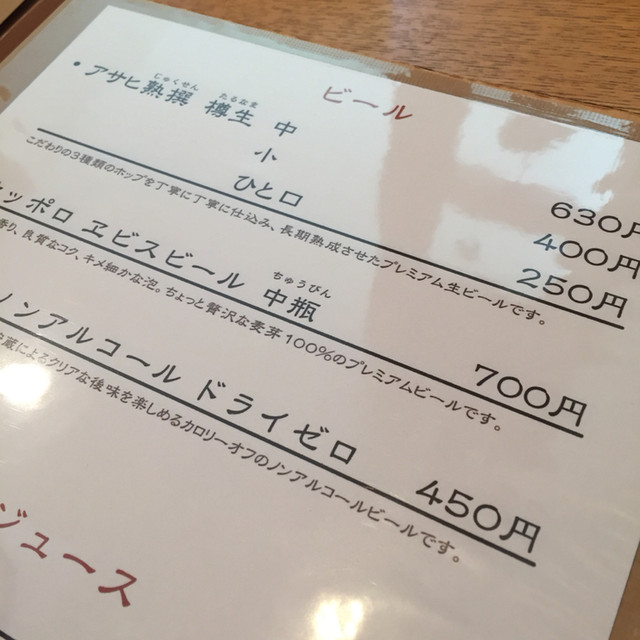 ビール
・アサヒ熟撰 樽生 中 630円
じゅくせん たるなま
小 400円
ひと口 250円
こだわりの3種類のホップを丁寧に丁寧に仕込み、長期熟成させたプレミアム生ビールです。
ッポロ ヱビスビール 中瓶 700円
ちゅうびん
香り、良質なコク、キメ細かな泡。ちょっと贅沢な麦芽100%のプレミアムビールです。
ノンアルコール ドライゼロ 450円
によるクリアな後味を楽しめるカロリーオフのノンアルコールビールです。
ジュース